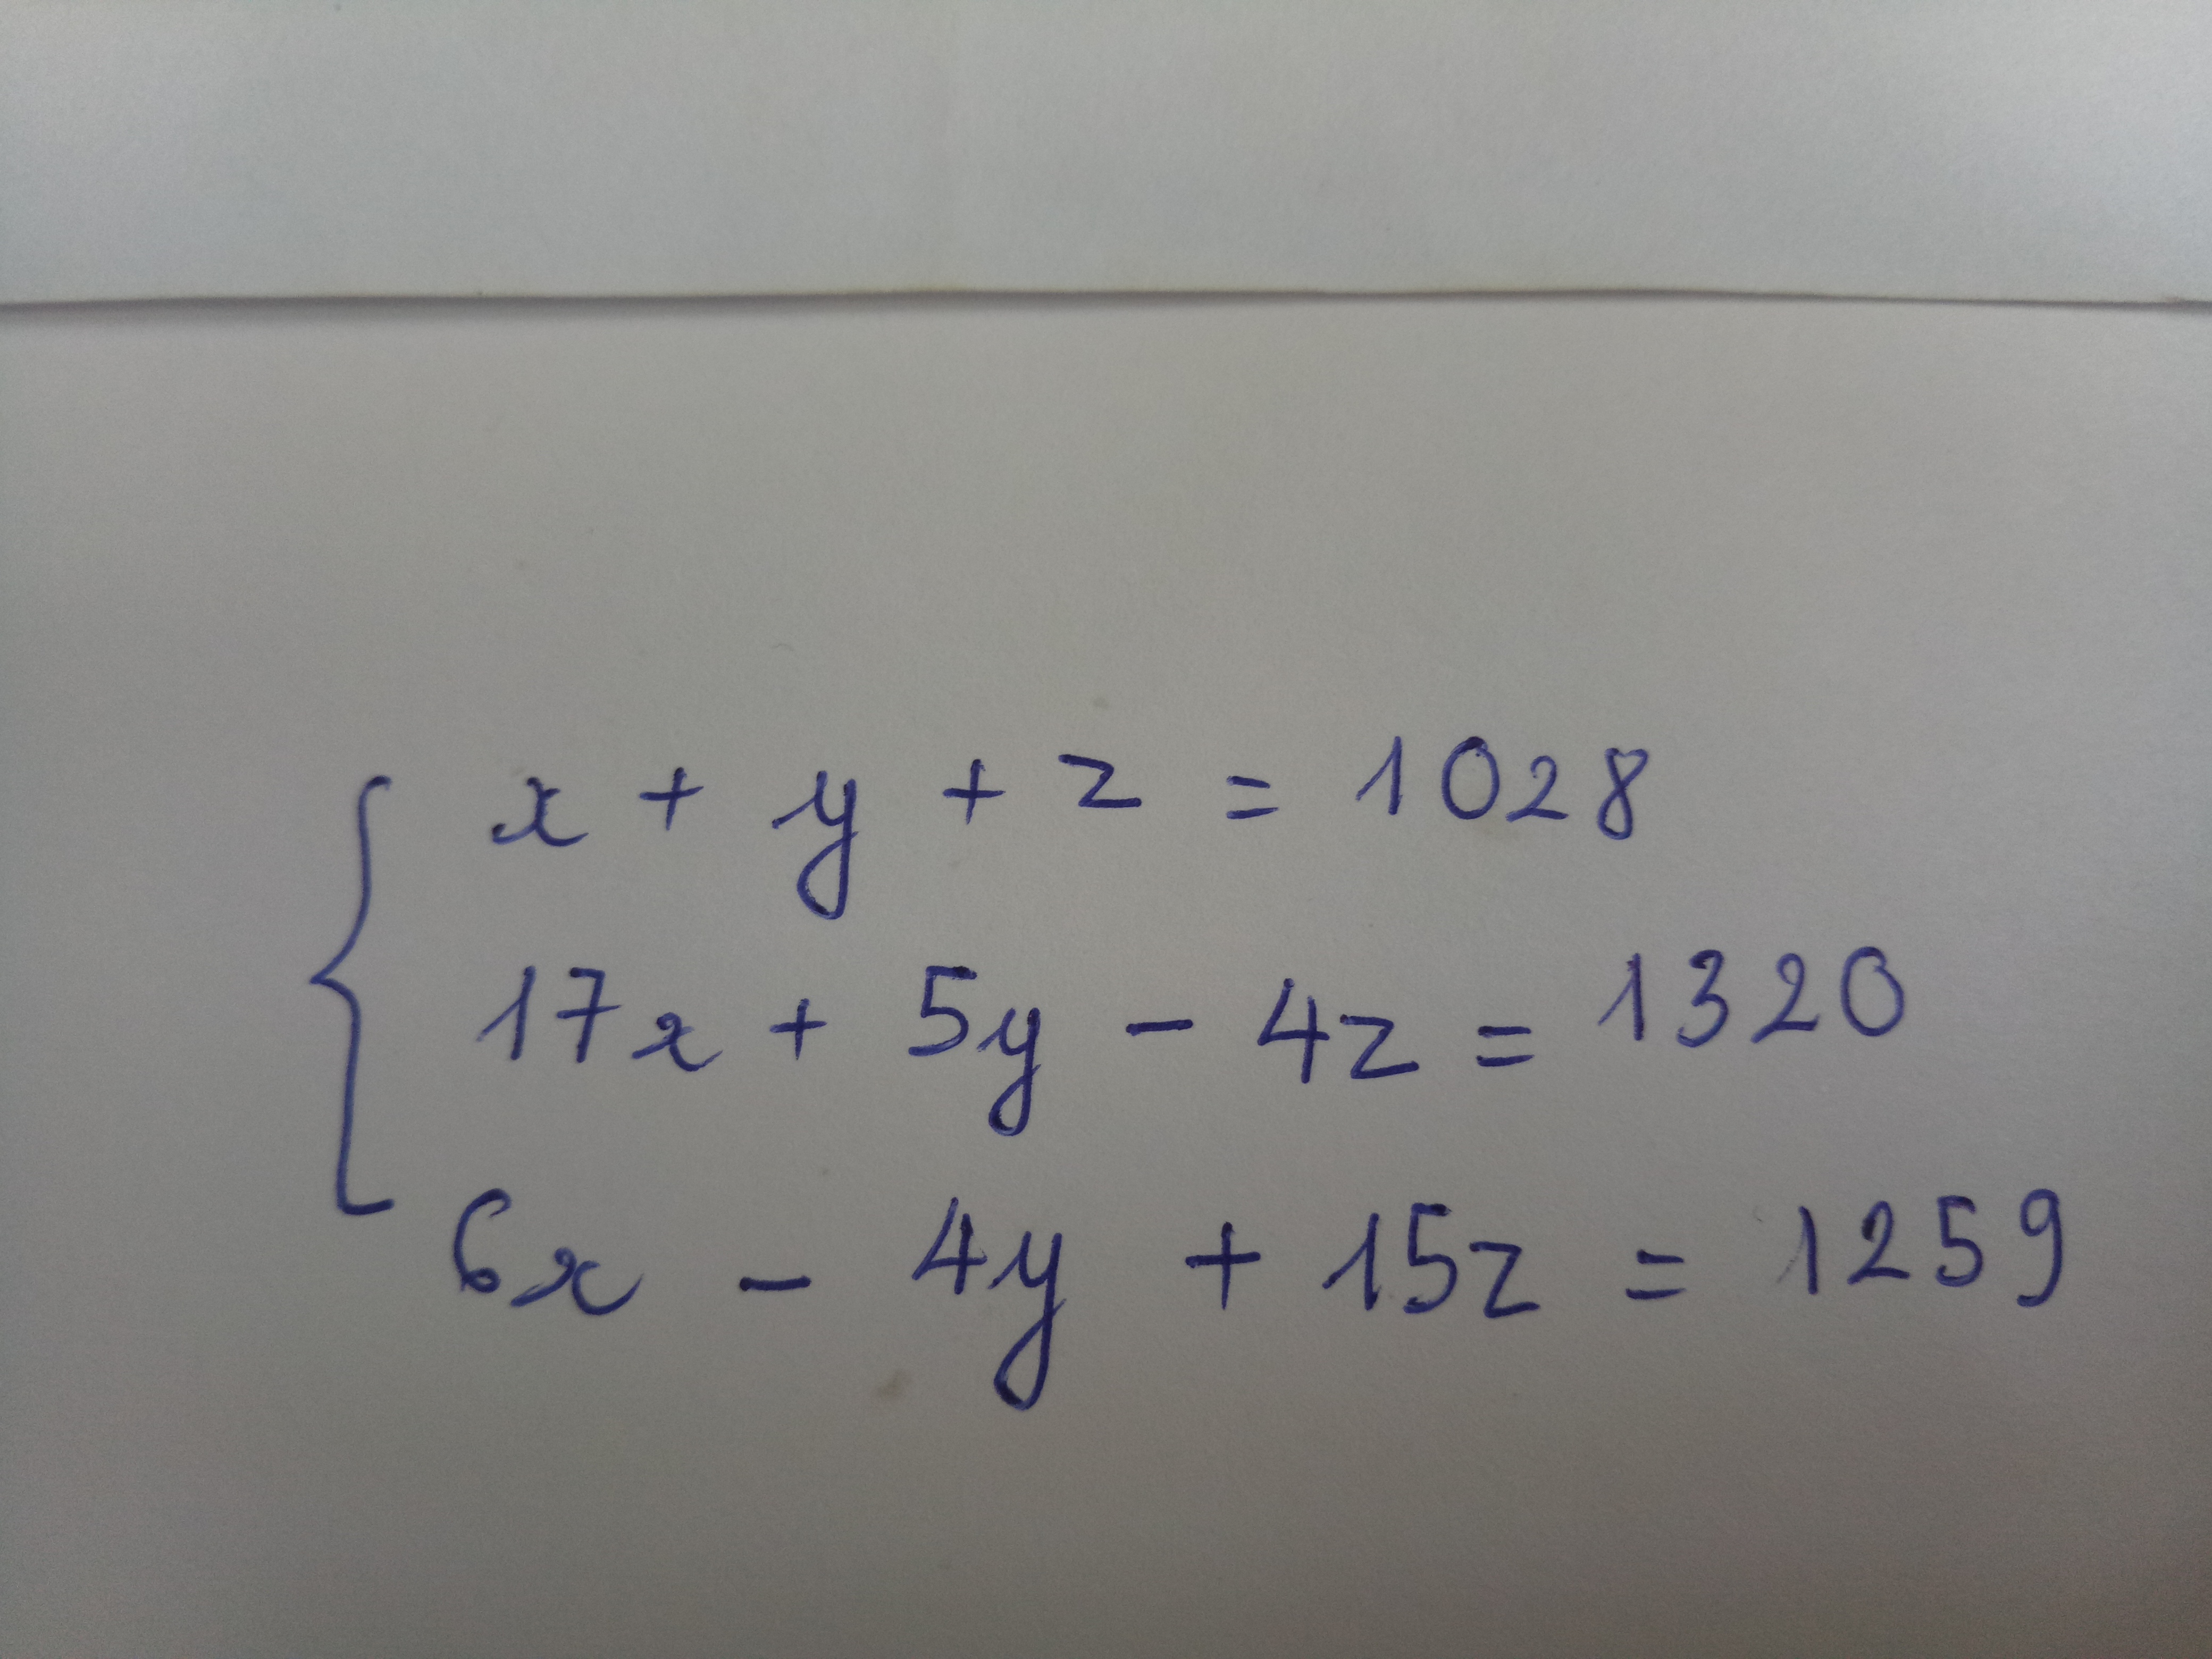 x + y + z = 1028
17x + 5y - 4z = 1320
6x - 4y + 15z = 1259